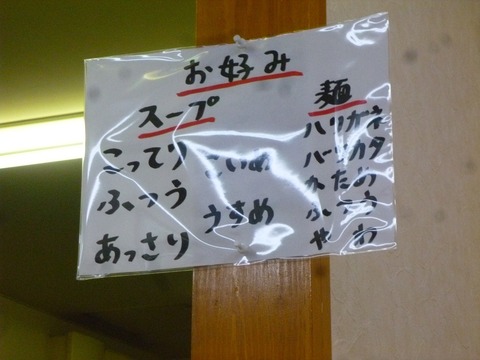 お好み
スープ
こってり こいめ
ふつう
うすめ
あっさり
麺
ハリガネ
バリカタ
かため
ふつう
やわ